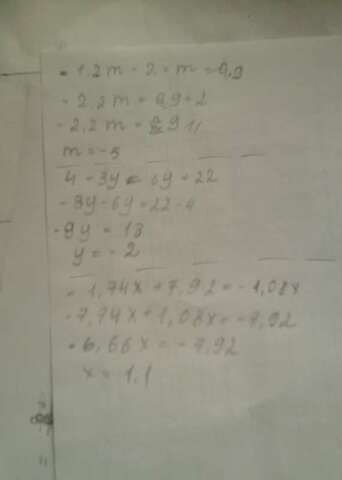 - 1,2m - 2 = m = 9,9
- 2,2m = 9,9+2
- 2,2m = 9 11
m = - 5
4 - 3y = 6y + 22
- 3y - 6y = 22 - 4
- 9y = 18
y = - 2
- 1,74x + 7,92 = - 1,08x
- 7,74x + 1,08x = - 7,92
- 6,66x = - 7,92
x = 1,1